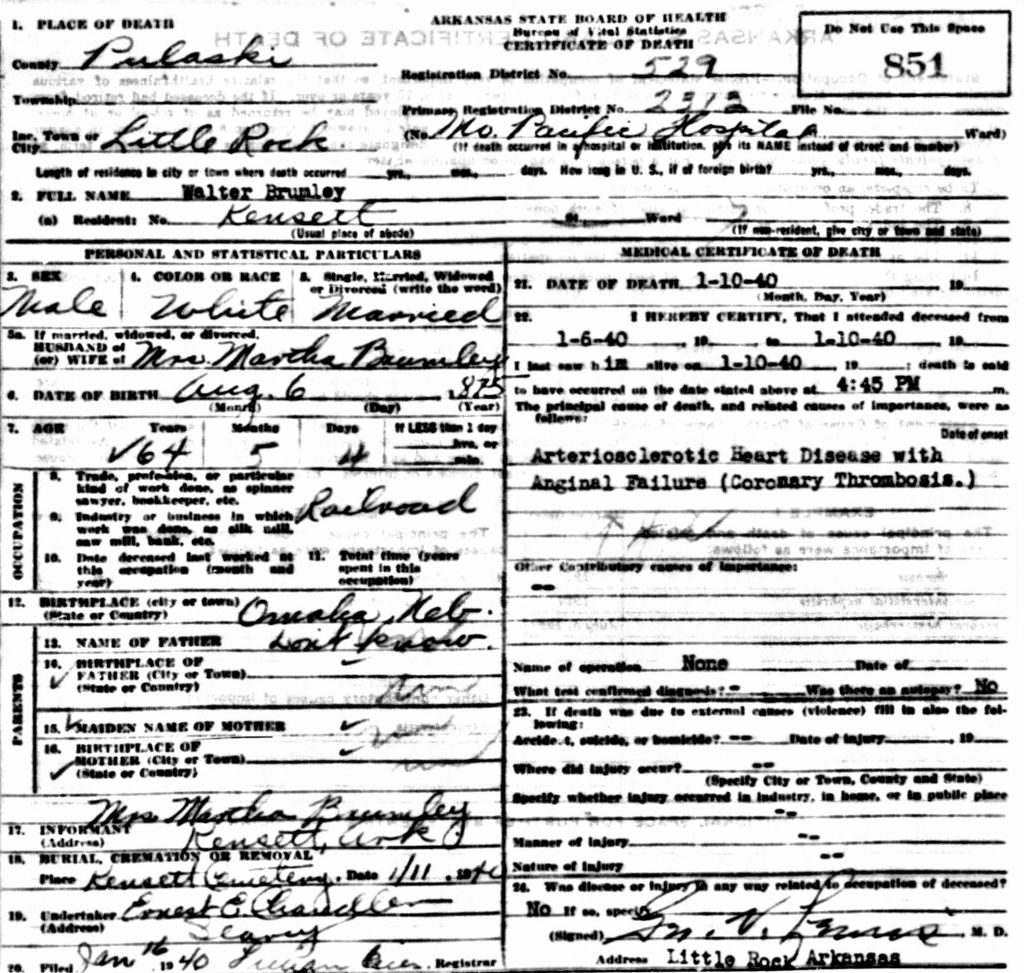 ARKANSAS STATE BOARD OF HEALTH
Bureau of Vital Statistics
CERTIFICATE OF DEATH
Do Not Use This Space
851
1. PLACE OF DEATH
County Pulaski
Registration District No. 529
Township
Primary Registration District No. 2312 File No.
Inc. Town or City Little Rock
(No. Mo. Pacific Hospital Ward)
(If death occurred in a hospital or institution, give its NAME instead of street and number)
Length of residence in city or town where death occurred yrs., mos., days. How long in U. S., if of foreign birth? yrs., mos., days.
2. FULL NAME Walter Brumley
(a) Resident: No. Kensett St. Ward
(Usual place of abode) (If non-resident, give city or town and state)
PERSONAL AND STATISTICAL PARTICULARS
3. SEX Male
4. COLOR OR RACE White
5. Single, Married, Widowed or Divorced (write the word) Married
5a. If married, widowed, or divorced,
HUSBAND of
(or) WIFE of Mrs. Martha Brumley
6. DATE OF BIRTH Aug. 6 1875
(Month) (Day) (Year)
7. AGE Years Months Days If LESS than 1 day
hrs. or
min.
64 5 4
OCCUPATION
8. Trade, profession, or particular
kind of work done, as spinner
sawyer, bookkeeper, etc.
Railroad
9. Industry or business in which
work was done, as silk mill,
saw mill, bank, etc.
10. Date deceased last worked at
this occupation (month and
year)
11. Total time (years
spent in this
occupation)
12. BIRTHPLACE (city or town) Omaha, Neb.
(State or Country)
PARENTS
13. NAME OF FATHER Don't know.
14. BIRTHPLACE OF
FATHER (City or Town)
(State or Country)
15. MAIDEN NAME OF MOTHER
16. BIRTHPLACE OF
MOTHER (City or Town)
(State or Country)
17. INFORMANT Mrs Martha Brumley
(Address) Kensett, Ark.
18. BURIAL, CREMATION OR REMOVAL
Place Kensett Cemetery. Date 1/11, 1940
19. Undertaker Ernest E. Chandler
(Address) Searcy
20. Filed Jan 16 1940 Registrar
MEDICAL CERTIFICATE OF DEATH
21. DATE OF DEATH 1-10-40 19
(Month, Day, Year)
22. I HEREBY CERTIFY, That I attended deceased from
1-6-40, 19, to 1-10-40, 19
I last saw him alive on 1-10-40, 19; death is said
to have occurred on the date stated above at 4:45 PM m.
The principal cause of death, and related causes of importance, were as
follows:
Date of onset
Arteriosclerotic Heart Disease with
Anginal Failure (Coronary Thrombosis.)
Other Contributory causes of importance:
--
Name of operation None Date of
What test confirmed diagnosis? -- Was there an autopsy? No
23. If death was due to external causes (violence) fill in also the fol-
lowing:
Accident, suicide, or homicide? -- Date of injury 19
Where did injury occur? --
(Specify City or Town, County and State)
Specify whether injury occurred in industry, in home, or in public place
--
Manner of injury --
Nature of injury --
24. Was disease or injury in any way related to occupation of deceased?
No If so, specify
(Signed) M. D.
Address Little Rock Arkansas